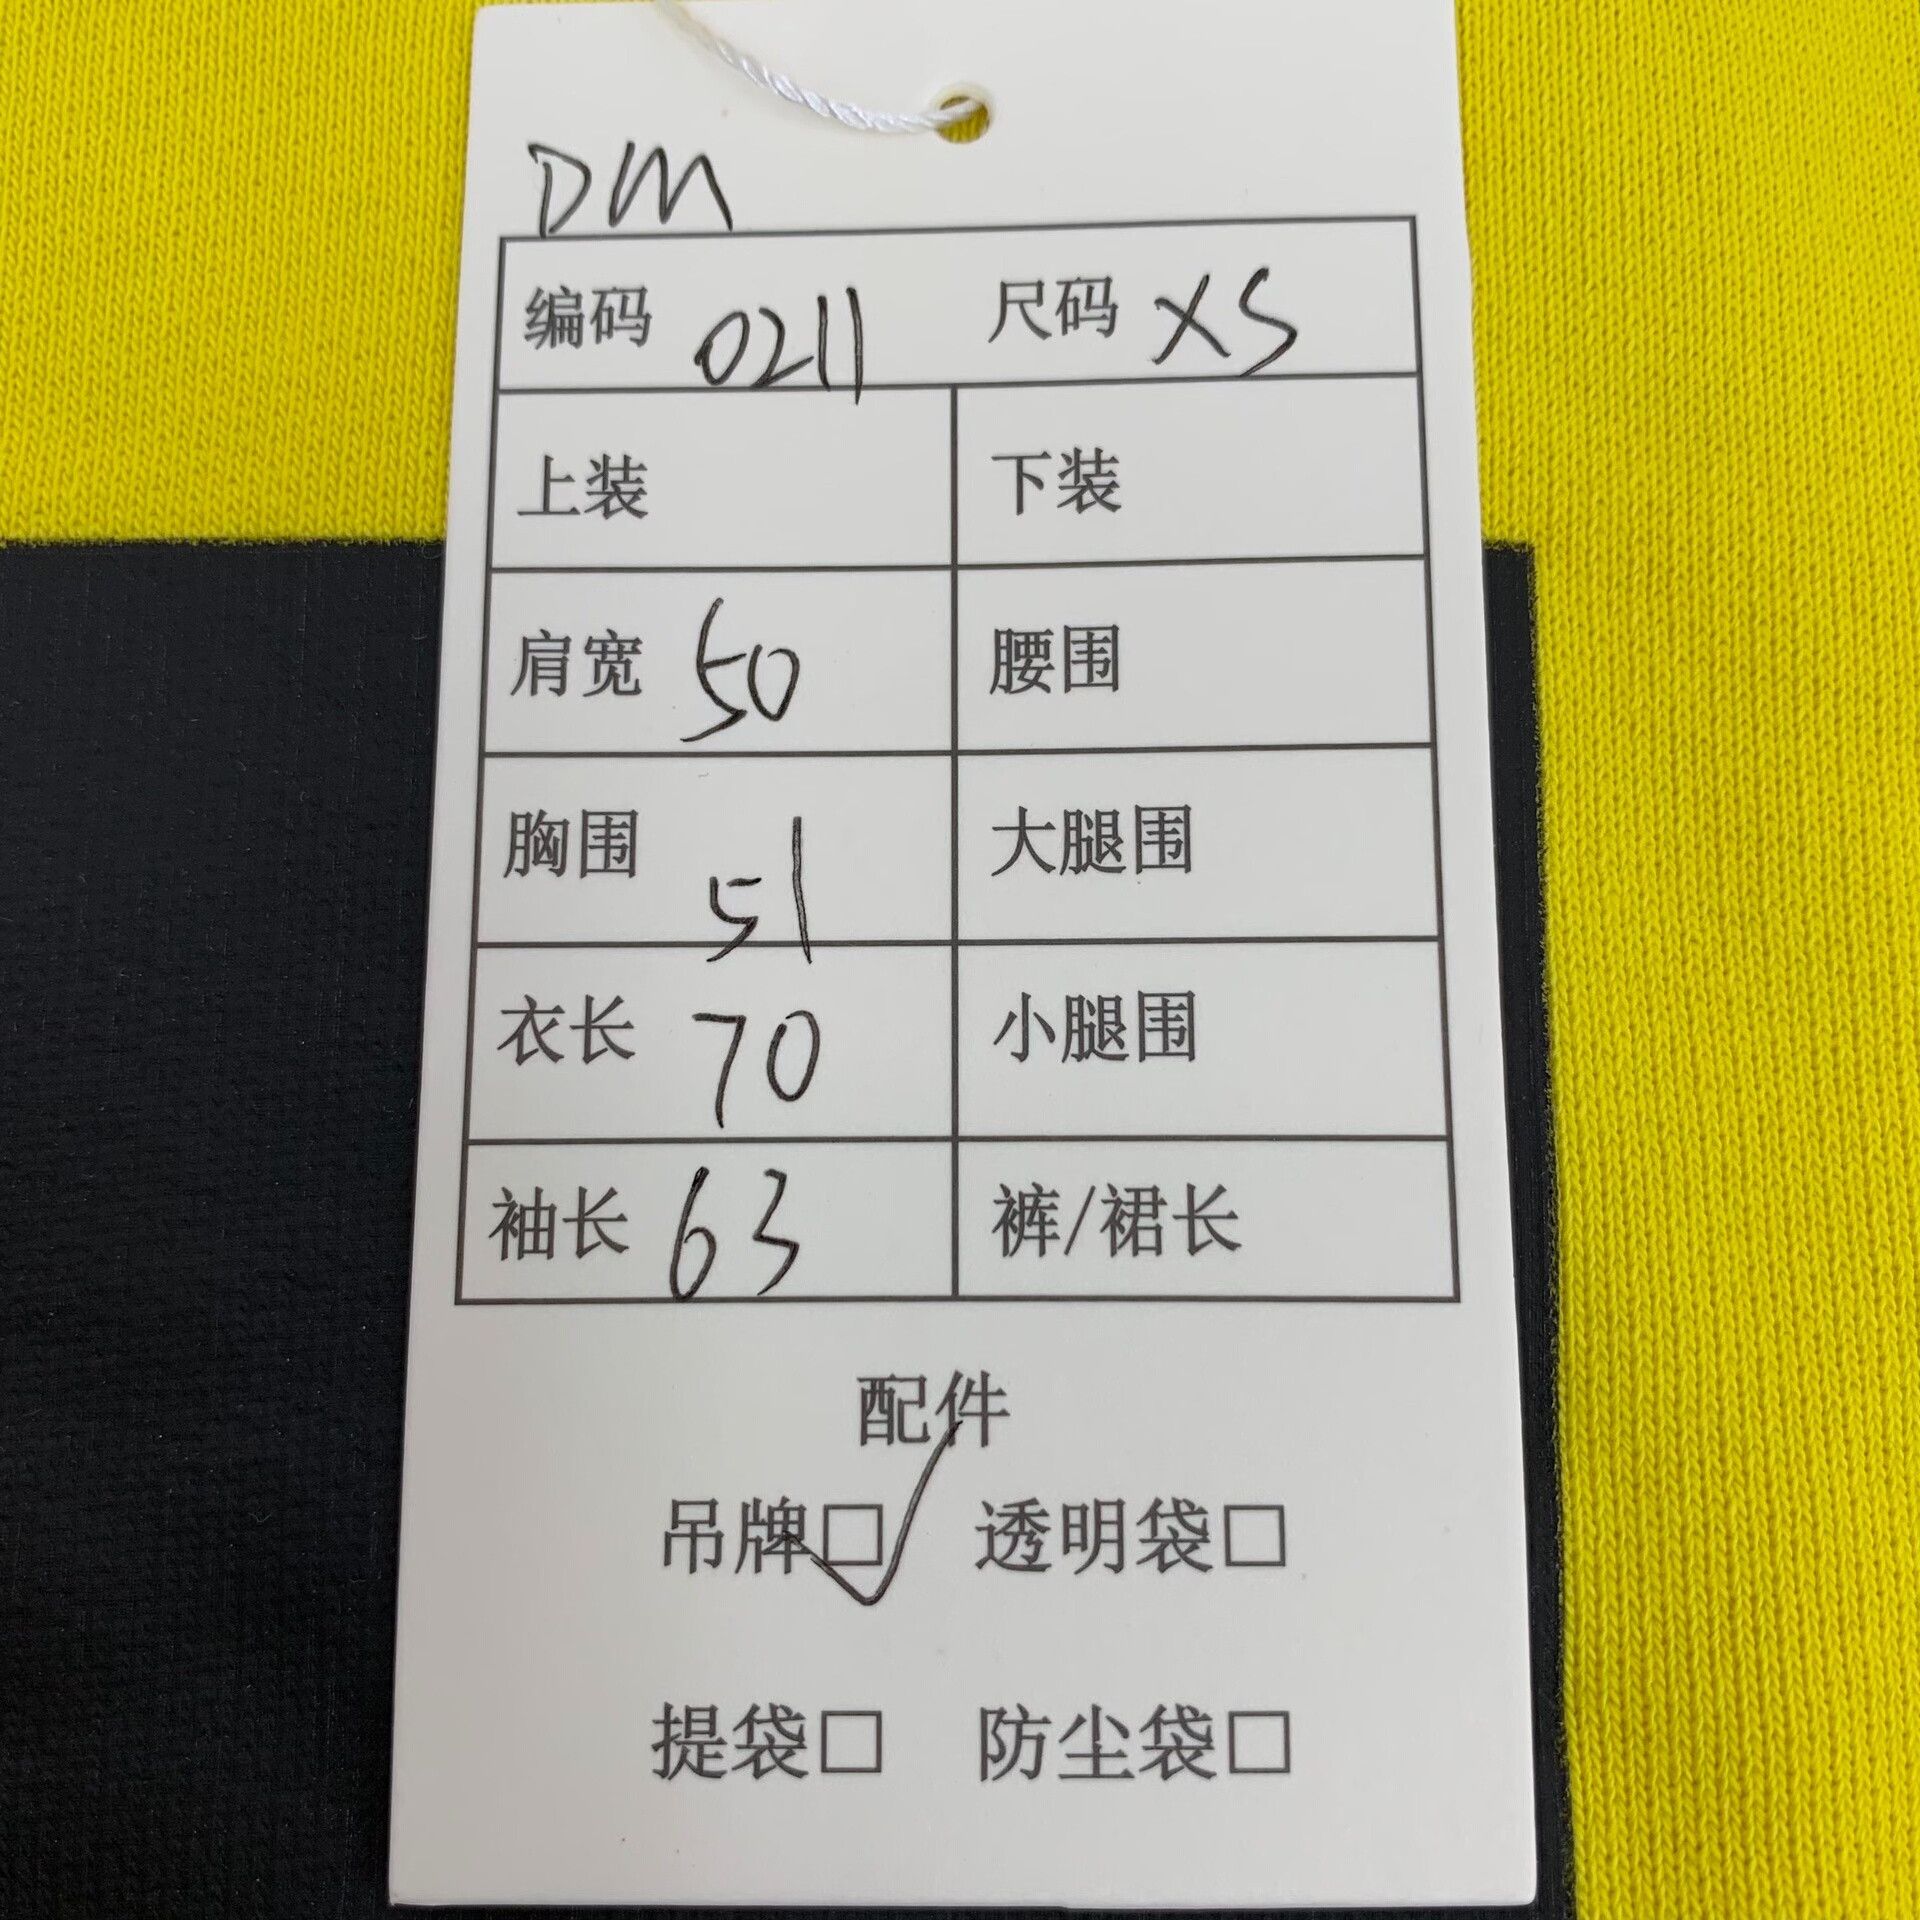 DM
编码 0211 尺码 XS
上装 下装
肩宽 50 腰围
胸围 51 大腿围
衣长 70 小腿围
袖长 63 裤/裙长
配件
吊牌□✓ 透明袋□
提袋□ 防尘袋□